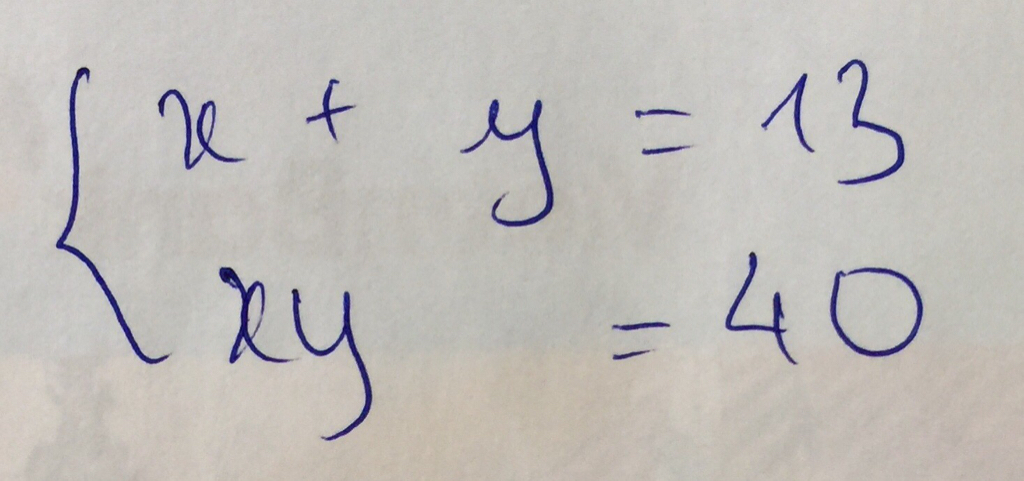 x + y = 13
xy = 40